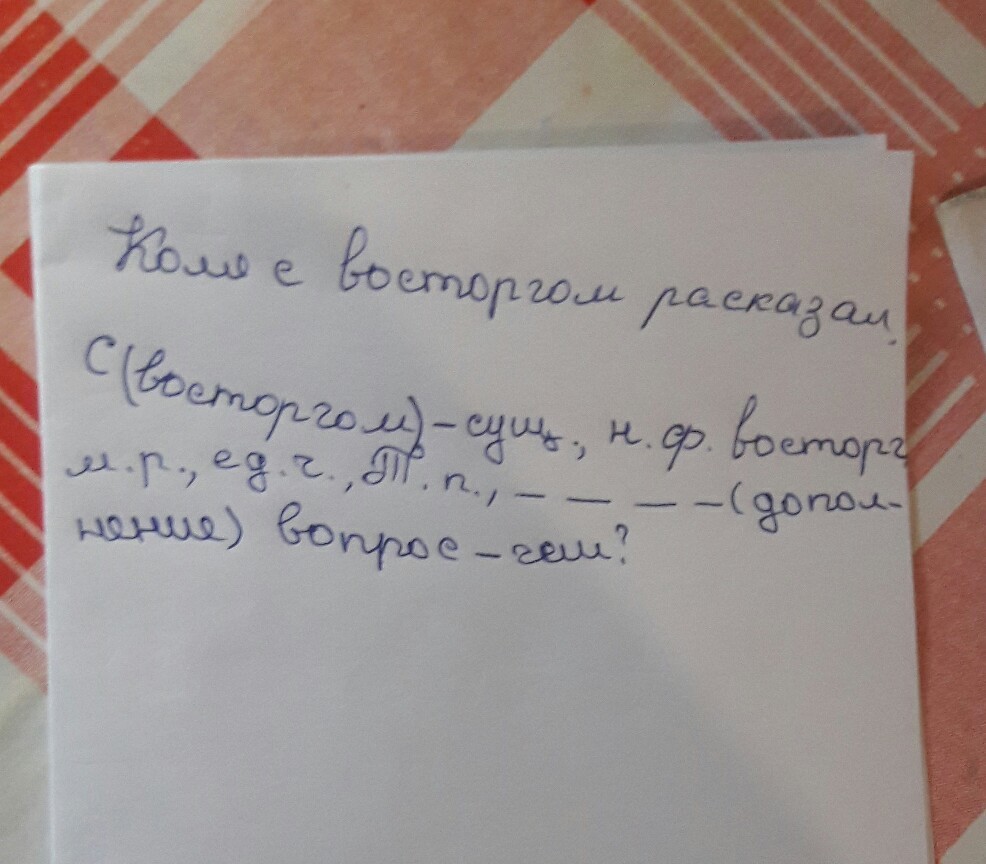 Коля с восторгом расказал.
С(восторгом) - сущ., н. ф. восторг
м.р., ед.ч., Т. п., _ _ _ _ (допол-
нение) вопрос - чем?